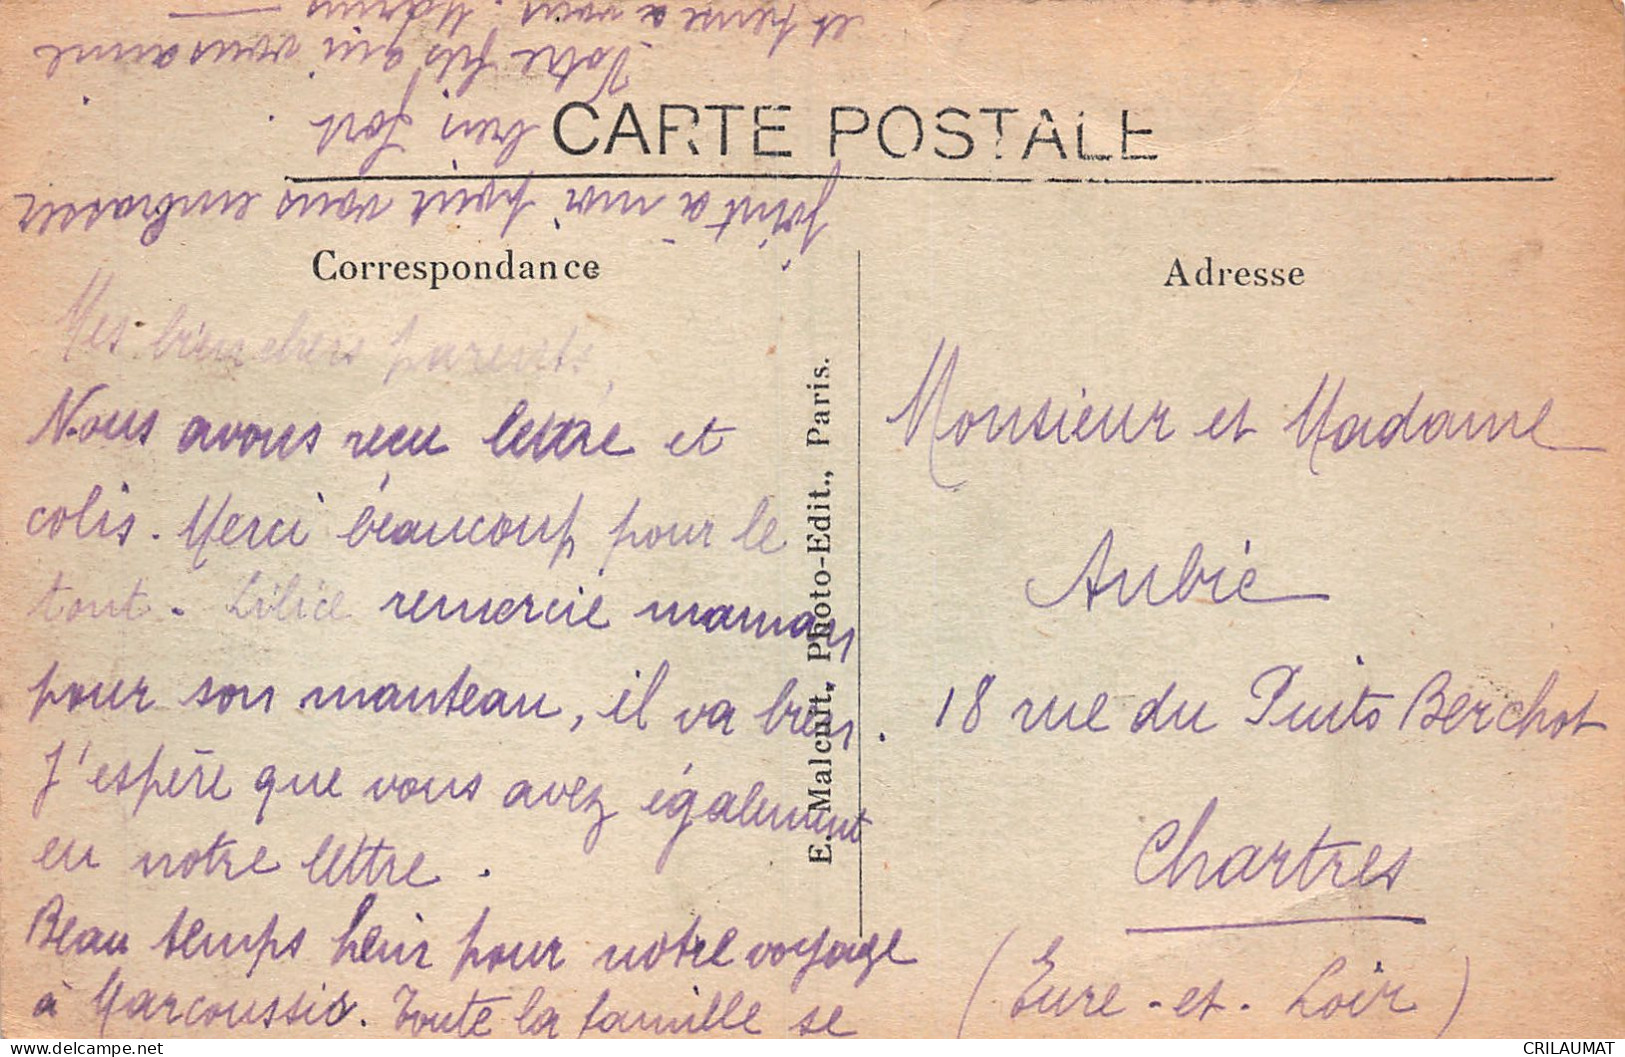 CARTE POSTALE
Correspondance
Adresse
Mes bien chers parents,
Nous avons reçu lettre et
colis. Merci beaucoup pour le
tout. Lilice remercie maman
pour son manteau, il va bien.
J'espère que vous avez également
eu notre lettre.
Beau temps hein pour notre voyage
à Marcoussis. Toute la famille se
joint à moi pour vous embrasser
bien fort.
Votre fils qui vous aime
et pense à vous.
E. Malcuit, Photo-Edit., Paris.
Monsieur et Madame
Aubié
18 rue du Puits Berchot
Chartres
(Eure-et-Loir)
delcampe.net
CRILAUMAT